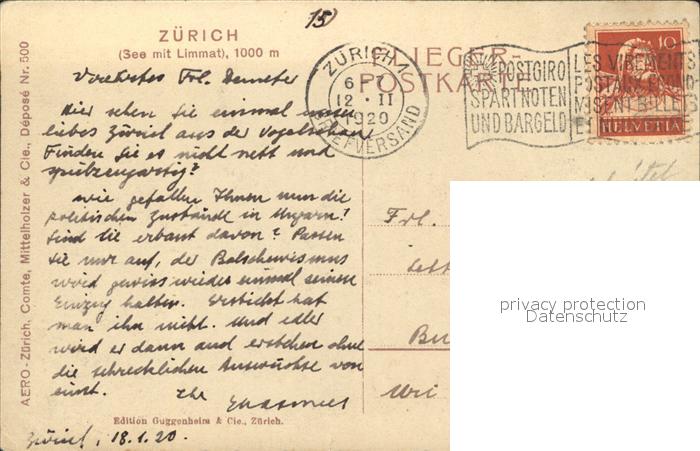 15
ZÜRICH
(See mit Limmat), 1000 m
FLIEGER-
POSTKARTE
ZÜRICH 1
12 · II
1920
BRIEFVERSAND
POSTGIRO
SPART NOTEN
UND BARGELD
LES VIREMENTS
POSTAUX ÉCONO-
MISENT BILLETS
10
HELVETIA
AERO-Zürich, Comte, Mittelholzer & Cie., Déposé Nr. 500
Verehrtes Frl. Demeter
Hier sehen Sie einmal unser
liebes Zürich aus der Vogelschau
Finden Sie es nicht nett und
spielzeugartig?
Wie gefallen Ihnen nun die
politischen Zustände in Ungarn?
Sind Sie erbaut davon? Passen
Sie nur auf, der Bolschewismus
wird gewiss wieder einmal seinen
Einzug halten. Erstickt hat
man ihn nicht. Und edler
wird er dann auferstehen ohne
die schrecklichen Auswüchse von
einst. Ihr
Erasmus
Edition Guggenheim & Cie., Zürich.
Zürich, 18.1.20.
Frl.
Bu
Wi
privacy protection
Datenschutz